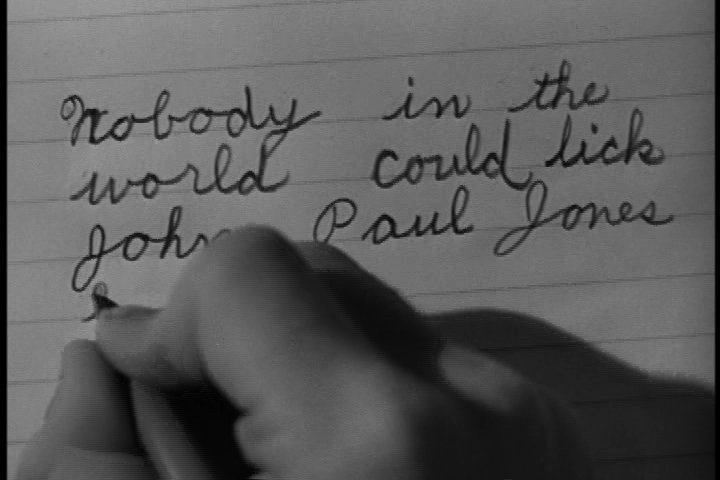 Nobody in the
world could lick
John Paul Jones